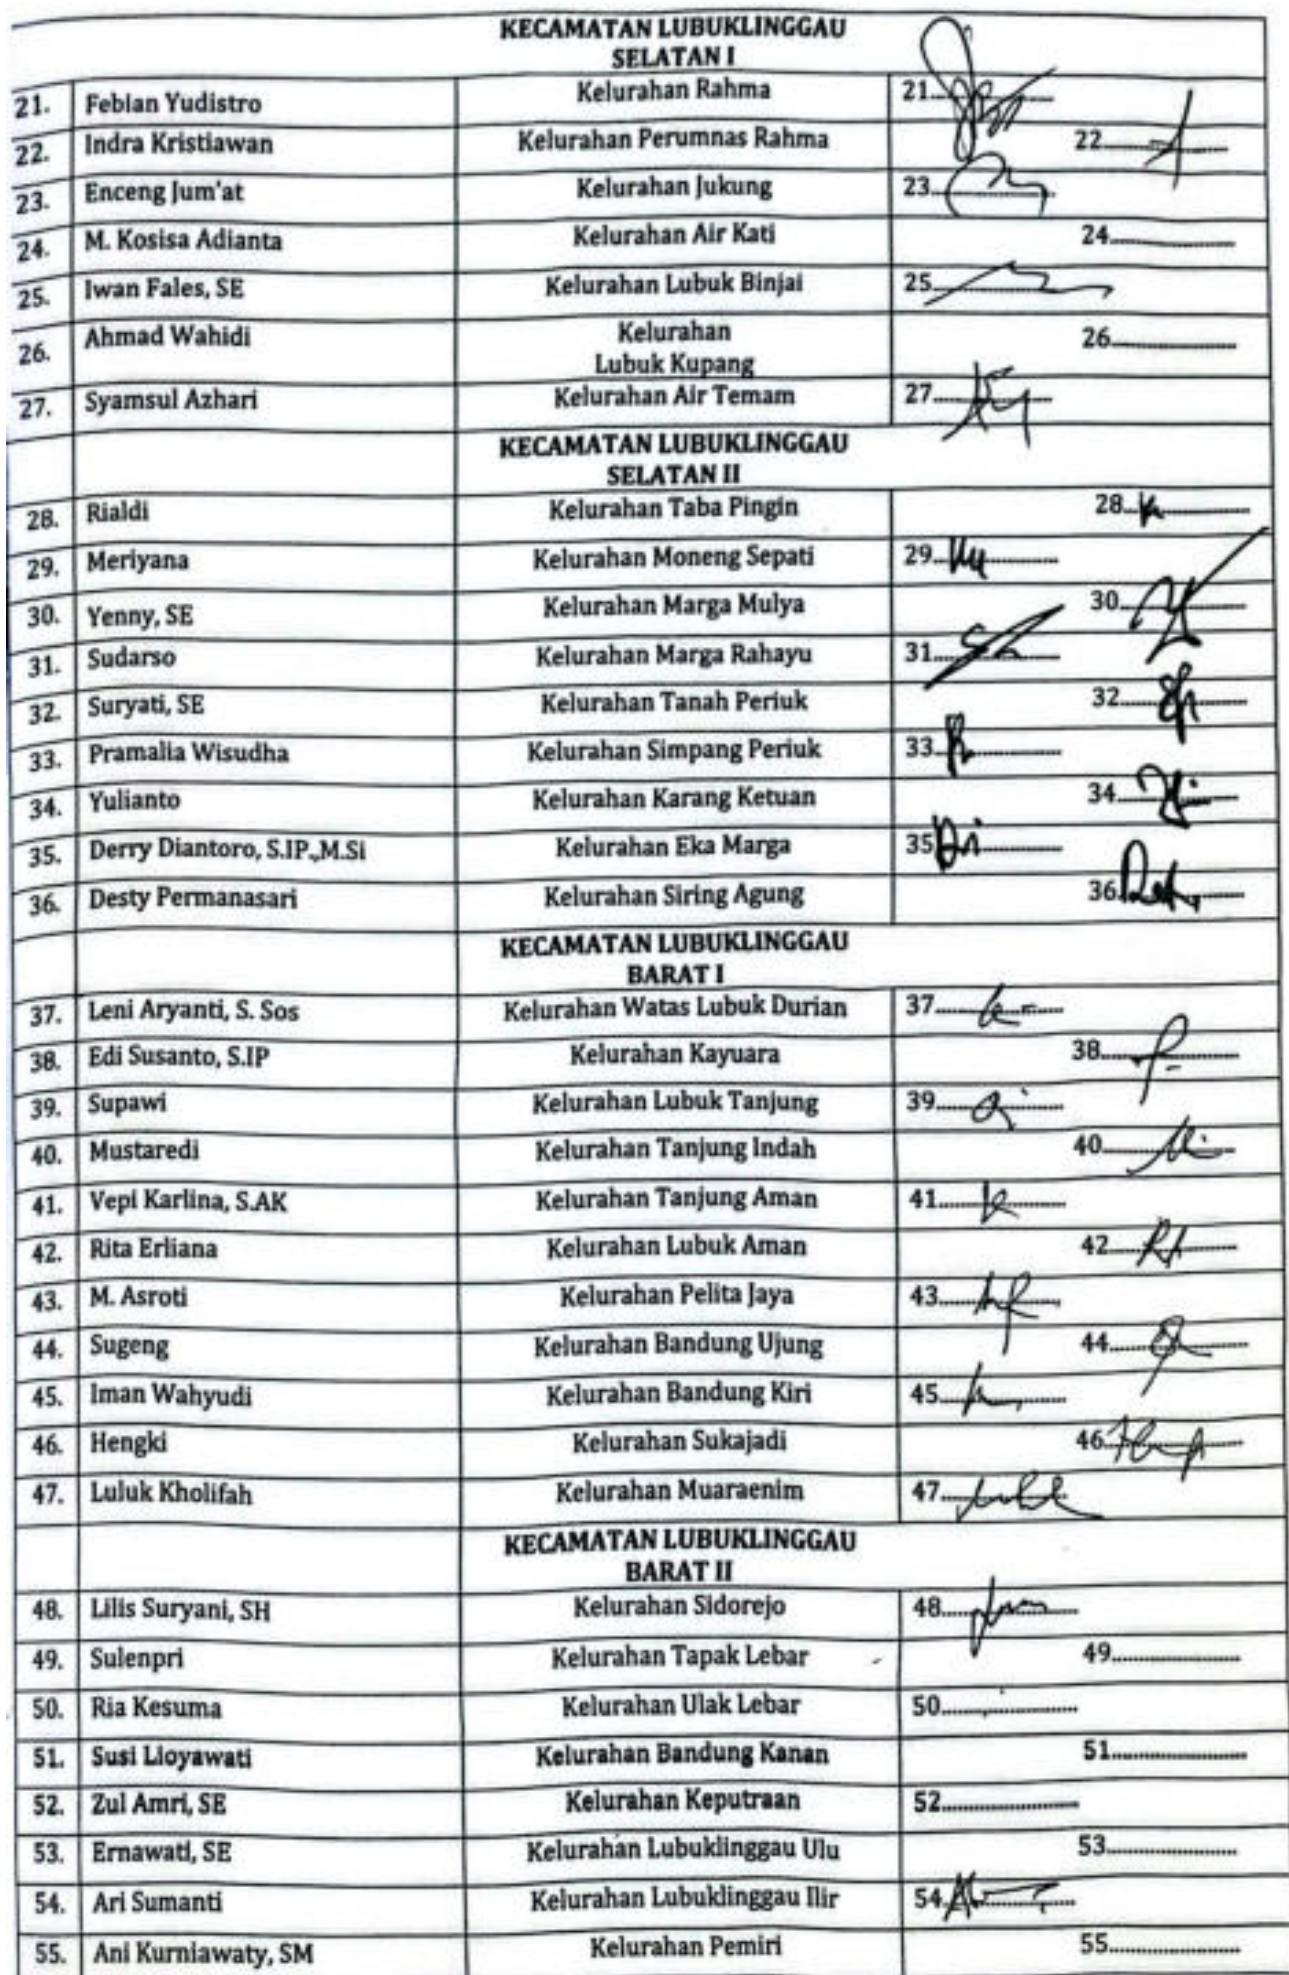 KECAMATAN LUBUKLINGGAU
SELATAN I
21. Febian Yudistro Kelurahan Rahma 21..........
22. Indra Kristiawan Kelurahan Perumnas Rahma 22..........
23. Enceng Jum'at Kelurahan Jukung 23..........
24. M. Kosisa Adianta Kelurahan Air Kati 24..........
25. Iwan Fales, SE Kelurahan Lubuk Binjai 25..........
26. Ahmad Wahidi Kelurahan 26..........
Lubuk Kupang
27. Syamsul Azhari Kelurahan Air Temam 27..........
KECAMATAN LUBUKLINGGAU
SELATAN II
28. Rialdi Kelurahan Taba Pingin 28..........
29. Meriyana Kelurahan Moneng Sepati 29..........
30. Yenny, SE Kelurahan Marga Mulya 30..........
31. Sudarso Kelurahan Marga Rahayu 31..........
32. Suryati, SE Kelurahan Tanah Periuk 32..........
33. Pramalia Wisudha Kelurahan Simpang Periuk 33..........
34. Yulianto Kelurahan Karang Ketuan 34..........
35. Derry Diantoro, S.IP.,M.Si Kelurahan Eka Marga 35..........
36. Desty Permanasari Kelurahan Siring Agung 36..........
KECAMATAN LUBUKLINGGAU
BARAT I
37. Leni Aryanti, S. Sos Kelurahan Watas Lubuk Durian 37..........
38. Edi Susanto, S.IP Kelurahan Kayuara 38..........
39. Supawi Kelurahan Lubuk Tanjung 39..........
40. Mustaredi Kelurahan Tanjung Indah 40..........
41. Vepi Karlina, S.AK Kelurahan Tanjung Aman 41..........
42. Rita Erliana Kelurahan Lubuk Aman 42..........
43. M. Asroti Kelurahan Pelita Jaya 43..........
44. Sugeng Kelurahan Bandung Ujung 44..........
45. Iman Wahyudi Kelurahan Bandung Kiri 45..........
46. Hengki Kelurahan Sukajadi 46..........
47. Luluk Kholifah Kelurahan Muaraenim 47..........
KECAMATAN LUBUKLINGGAU
BARAT II
48. Lilis Suryani, SH Kelurahan Sidorejo 48..........
49. Sulenpri Kelurahan Tapak Lebar 49..........
50. Ria Kesuma Kelurahan Ulak Lebar 50..........
51. Susi Lioyawati Kelurahan Bandung Kanan 51..........
52. Zul Amri, SE Kelurahan Keputraan 52..........
53. Ernawati, SE Kelurahan Lubuklinggau Ulu 53..........
54. Ari Sumanti Kelurahan Lubuklinggau Ilir 54..........
55. Ani Kurniawaty, SM Kelurahan Pemiri 55..........